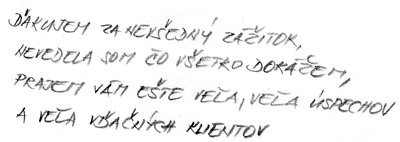 ĎAKUJEM ZA NEVŠEDNÝ ZÁŽITOK,
NEVEDELA SOM ČO VŠETKO DOKÁŽEM,
PRAJEM VÁM EŠTE VEĽA, VEĽA ÚSPECHOV
A VEĽA VĎAČNÝCH KLIENTOV